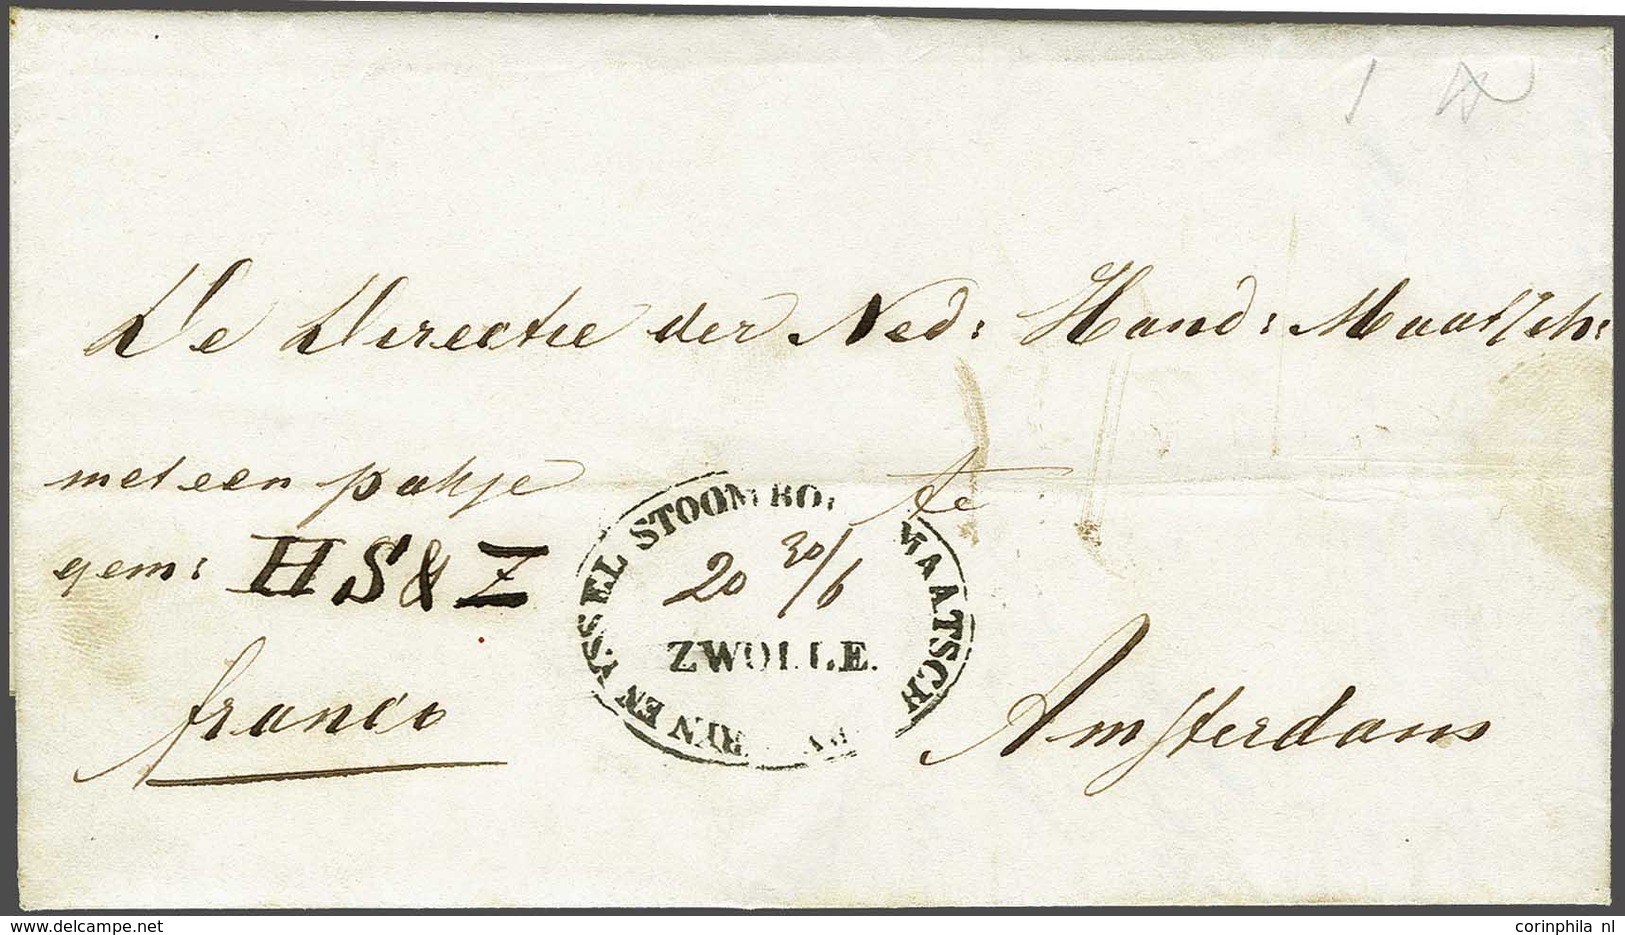 De Directie der Ned: Hand: Maatsch:
met een pakje te
gem: HS&Z
20 30/6
ZWOLLE.
RIJN EN YSSEL STOOMBO MAATSCH
franco Amsterdam
www.delcampe.net
corinphila nl